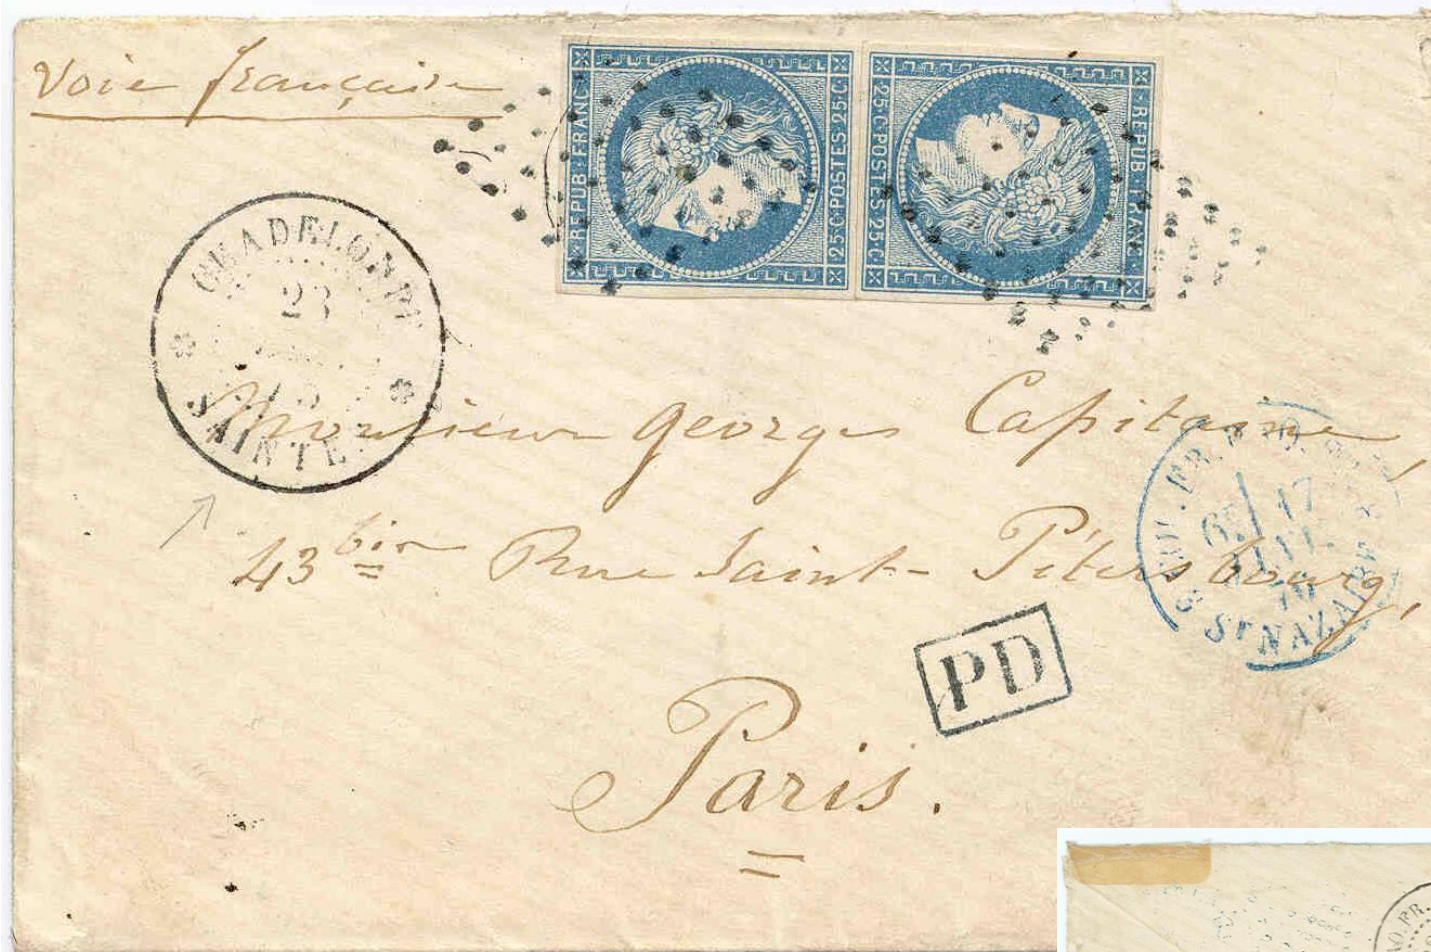 Voie française
REPUB·FRANC
25·C·POSTES·25·C
25·C·POSTES·25·C
REPUB·FRANC
GUADELOUPE
23
SAINTE
Monsieur Georges Capitaine,
43 bis Rue Saint-Pétersbourg,
COL.FR.
17
76
ST NAZAIRE
PD
Paris.